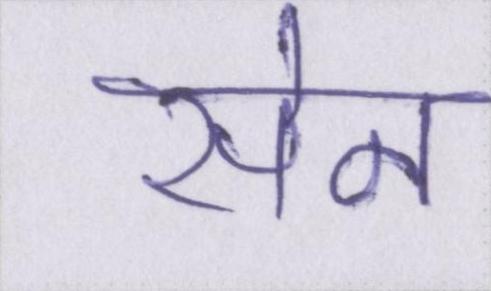 सेन